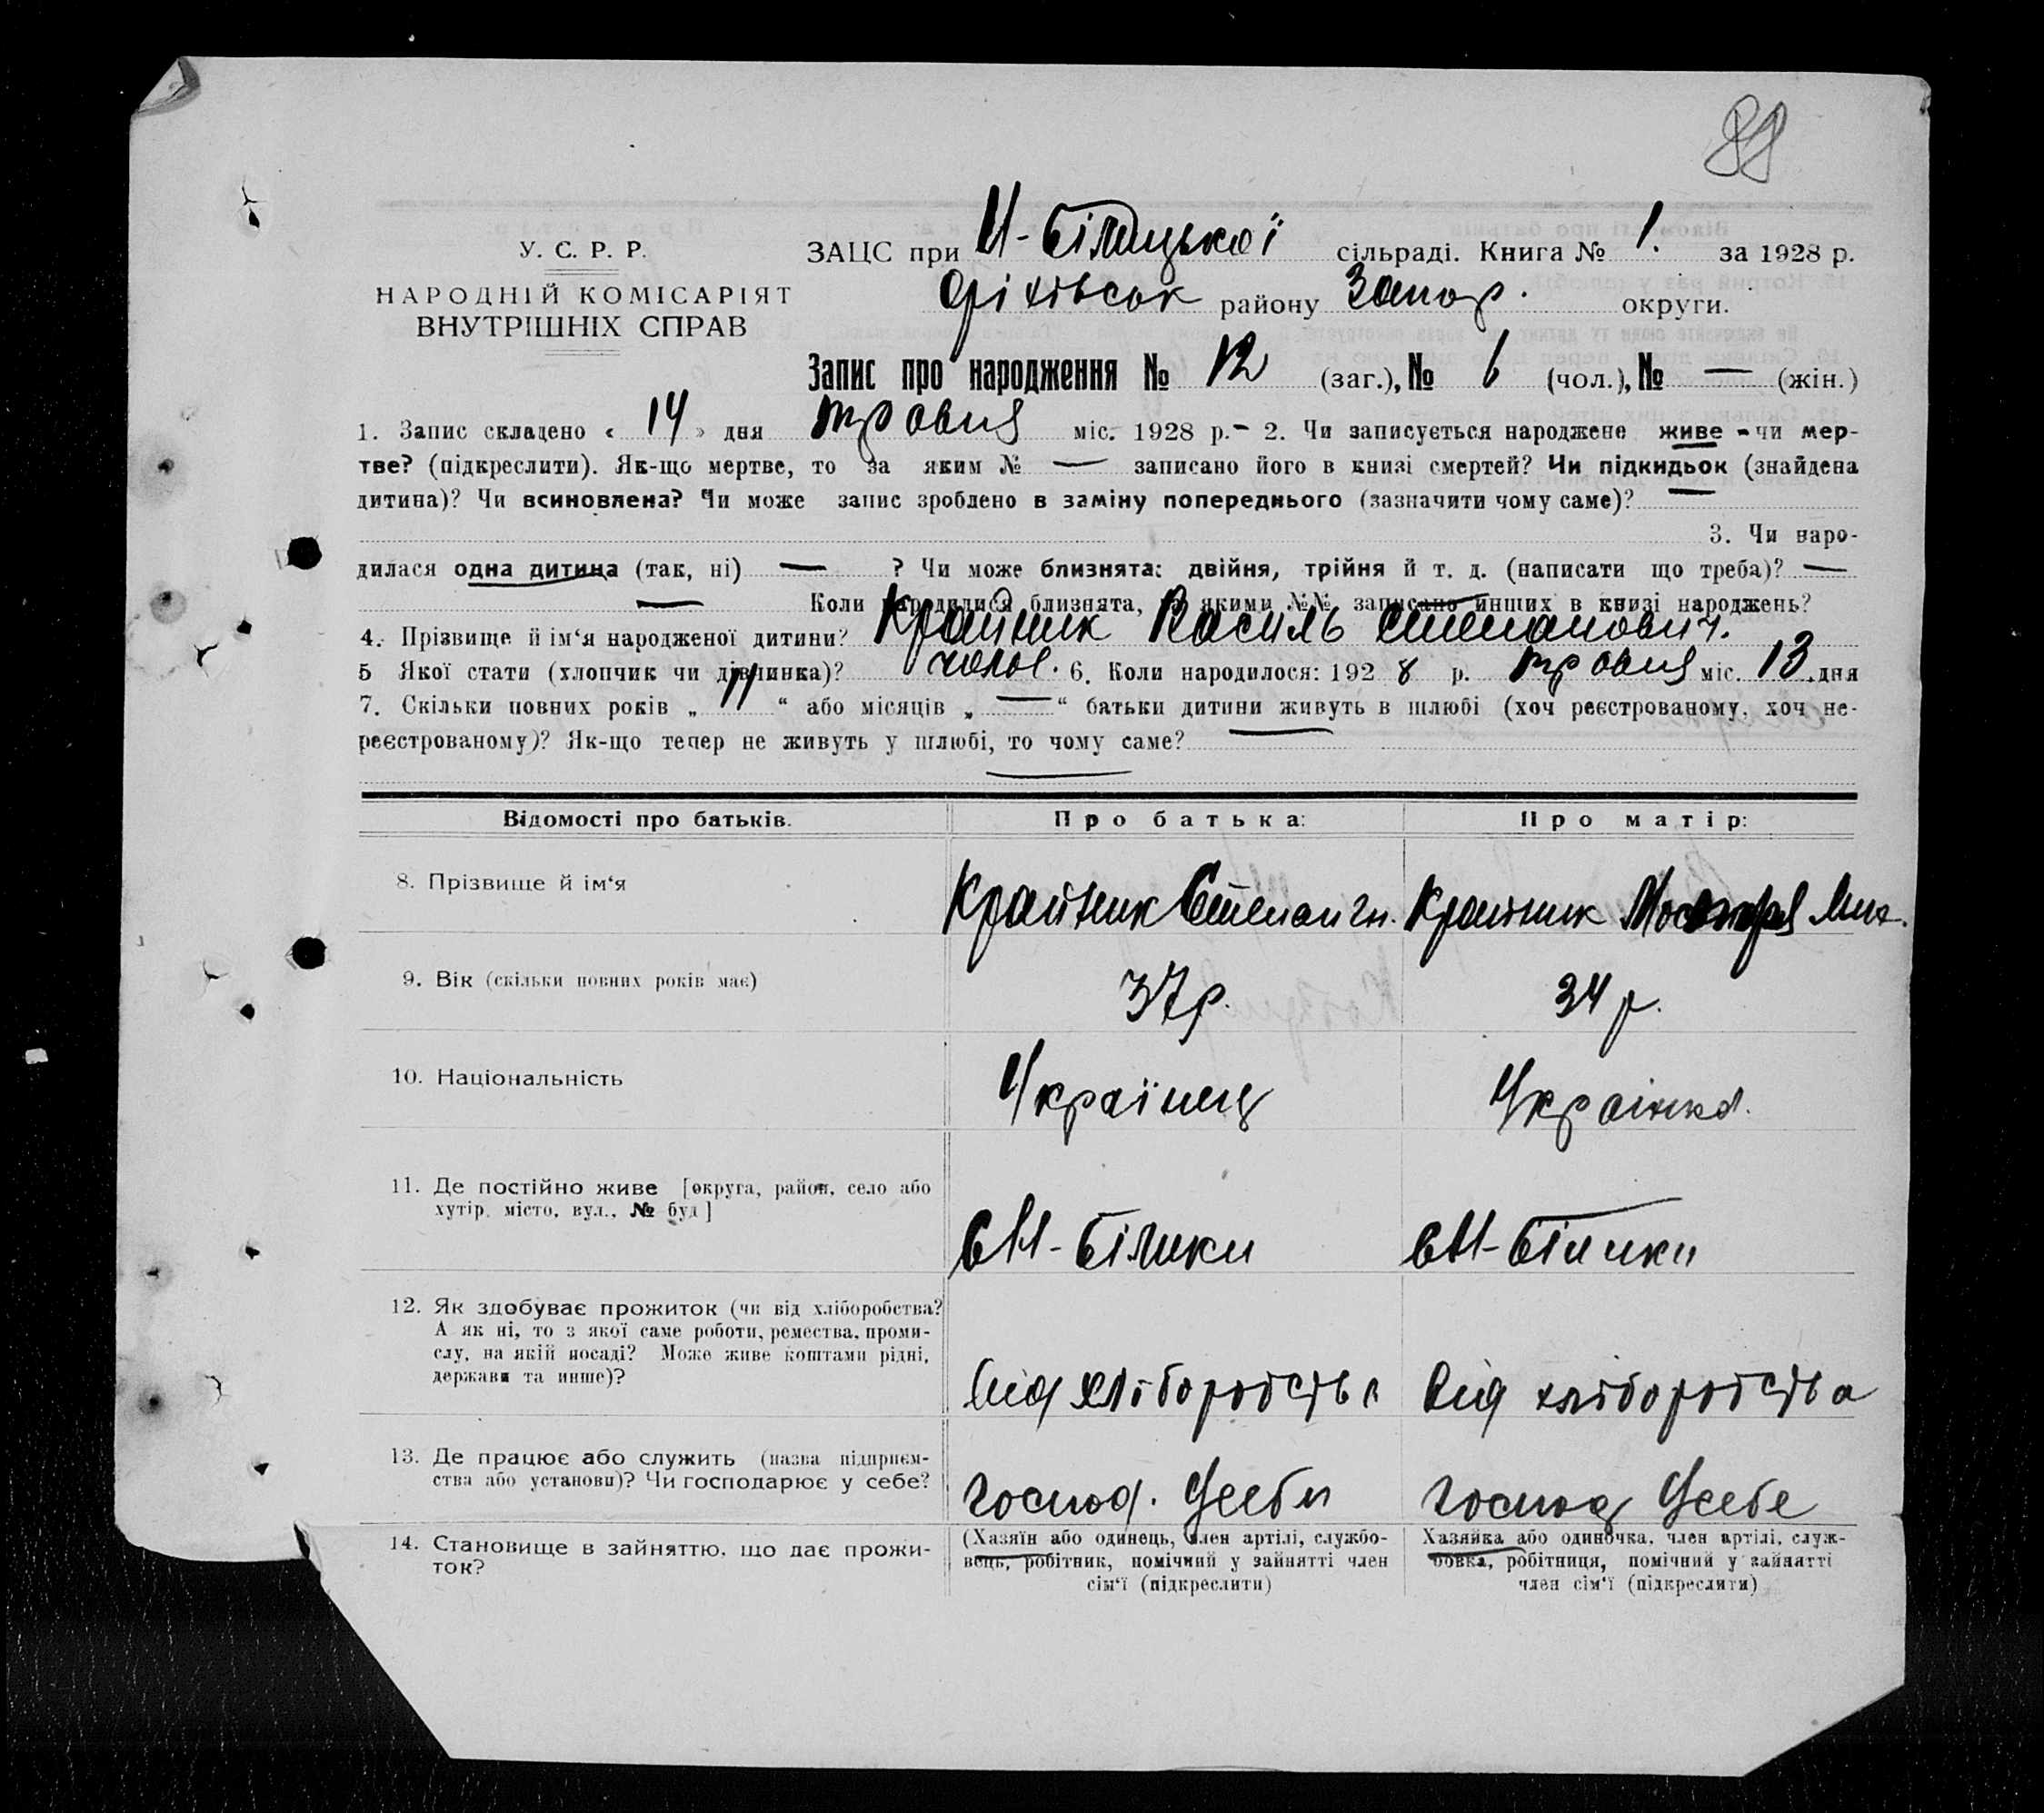 88
У. С. Р. Р.
НАРОДНІЙ КОМІСАРІЯТ
ВНУТРІШНІХ СПРАВ
ЗАЦС при Н-Білицької сільраді. Книга № 1. за 1928 р.
Оріхівськ району Запор. округи.
Запис про народження № 12 (заг.), № 6 (чол.), № — (жін.)
1. Запис складено « 14 » дня травня міс. 1928 р.- 2. Чи записується народжене живе - чи мер-
тве? (підкреслити). Як-що мертве, то за яким № — записано його в книзі смертей? Чи підкидьок (знайдена
дитина)? Чи всиновлена? Чи може запис зроблено в заміну попереднього (зазначити чому саме)? —
3. Чи наро-
дилася одна дитина (так, ні) — ? Чи може близнята: двійня, трійня й т. д. (написати що треба)? —
— Коли народилися близнята, якими №№ записано инших в книзі народжень?
4. Прізвище й ім'я народженої дитини? Крайник Василь Степанович.
5 Якої стати (хлопчик чи дівчинка)? чолов. 6. Коли народилося: 192 8 р. травня міс. 13 дня
7. Скільки повних років „ 11 “ або місяців „ — “ батьки дитини живуть в шлюбі (хоч реєстрованому, хоч не-
реєстрованому)? Як-що тепер не живуть у шлюбі, то чому саме? —
—
Відомості про батьків. Про батька: Про матір:
8. Прізвище й ім'я Крайник Степан Крайник Мих.
9. Вік (скільки повних років має) 37 р. 34 р.
10. Національність Українець Українка.
11. Де постійно живе [округа, район, село або
хутір, місто, вул., № буд]
сН-Білики сН-Білики
12. Як здобуває прожиток (чи від хліборобства?
А як ні, то з якої саме роботи, ремества, проми-
слу, на якій посаді? Може живе коштами рідні,
держави та инше)?
Від хліборобства Від хліборобства
13. Де працює або служить (назва підприєм-
ства або установи)? Чи господарює у себе?
Господ. Усеби Господ Усебе
14. Становище в зайняттю, що дає прожи-
ток?
(Хазяїн або одинець, член артілі, службо-
вець, робітник, помічний у зайнятті член
сім'ї (підкреслити)
Хазяйка або одиночка, член артілі, служ-
бовка, робітниця, помічний у зайнятті
член сім'ї (підкреслити)